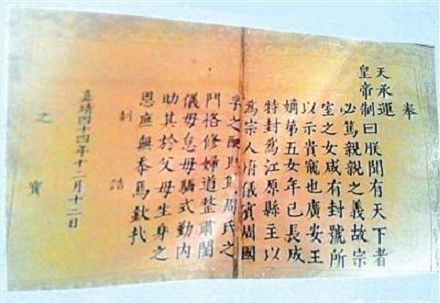 奉
天承運
皇帝制曰朕聞有天下者
必篤親親之義故宗
室之女咸有封號所
以示貴寵也廣安王
嫡第五女年已長成
特封爲江原縣主以
爲宗人府儀賓周國
孚之配爾爲周氏之
門恪修婦道整肅閨
儀毋怠毋驕式勤内
助其於父母生身之
恩庶無忝焉欽哉
制誥
嘉靖四十四年十二月十二日
之寶